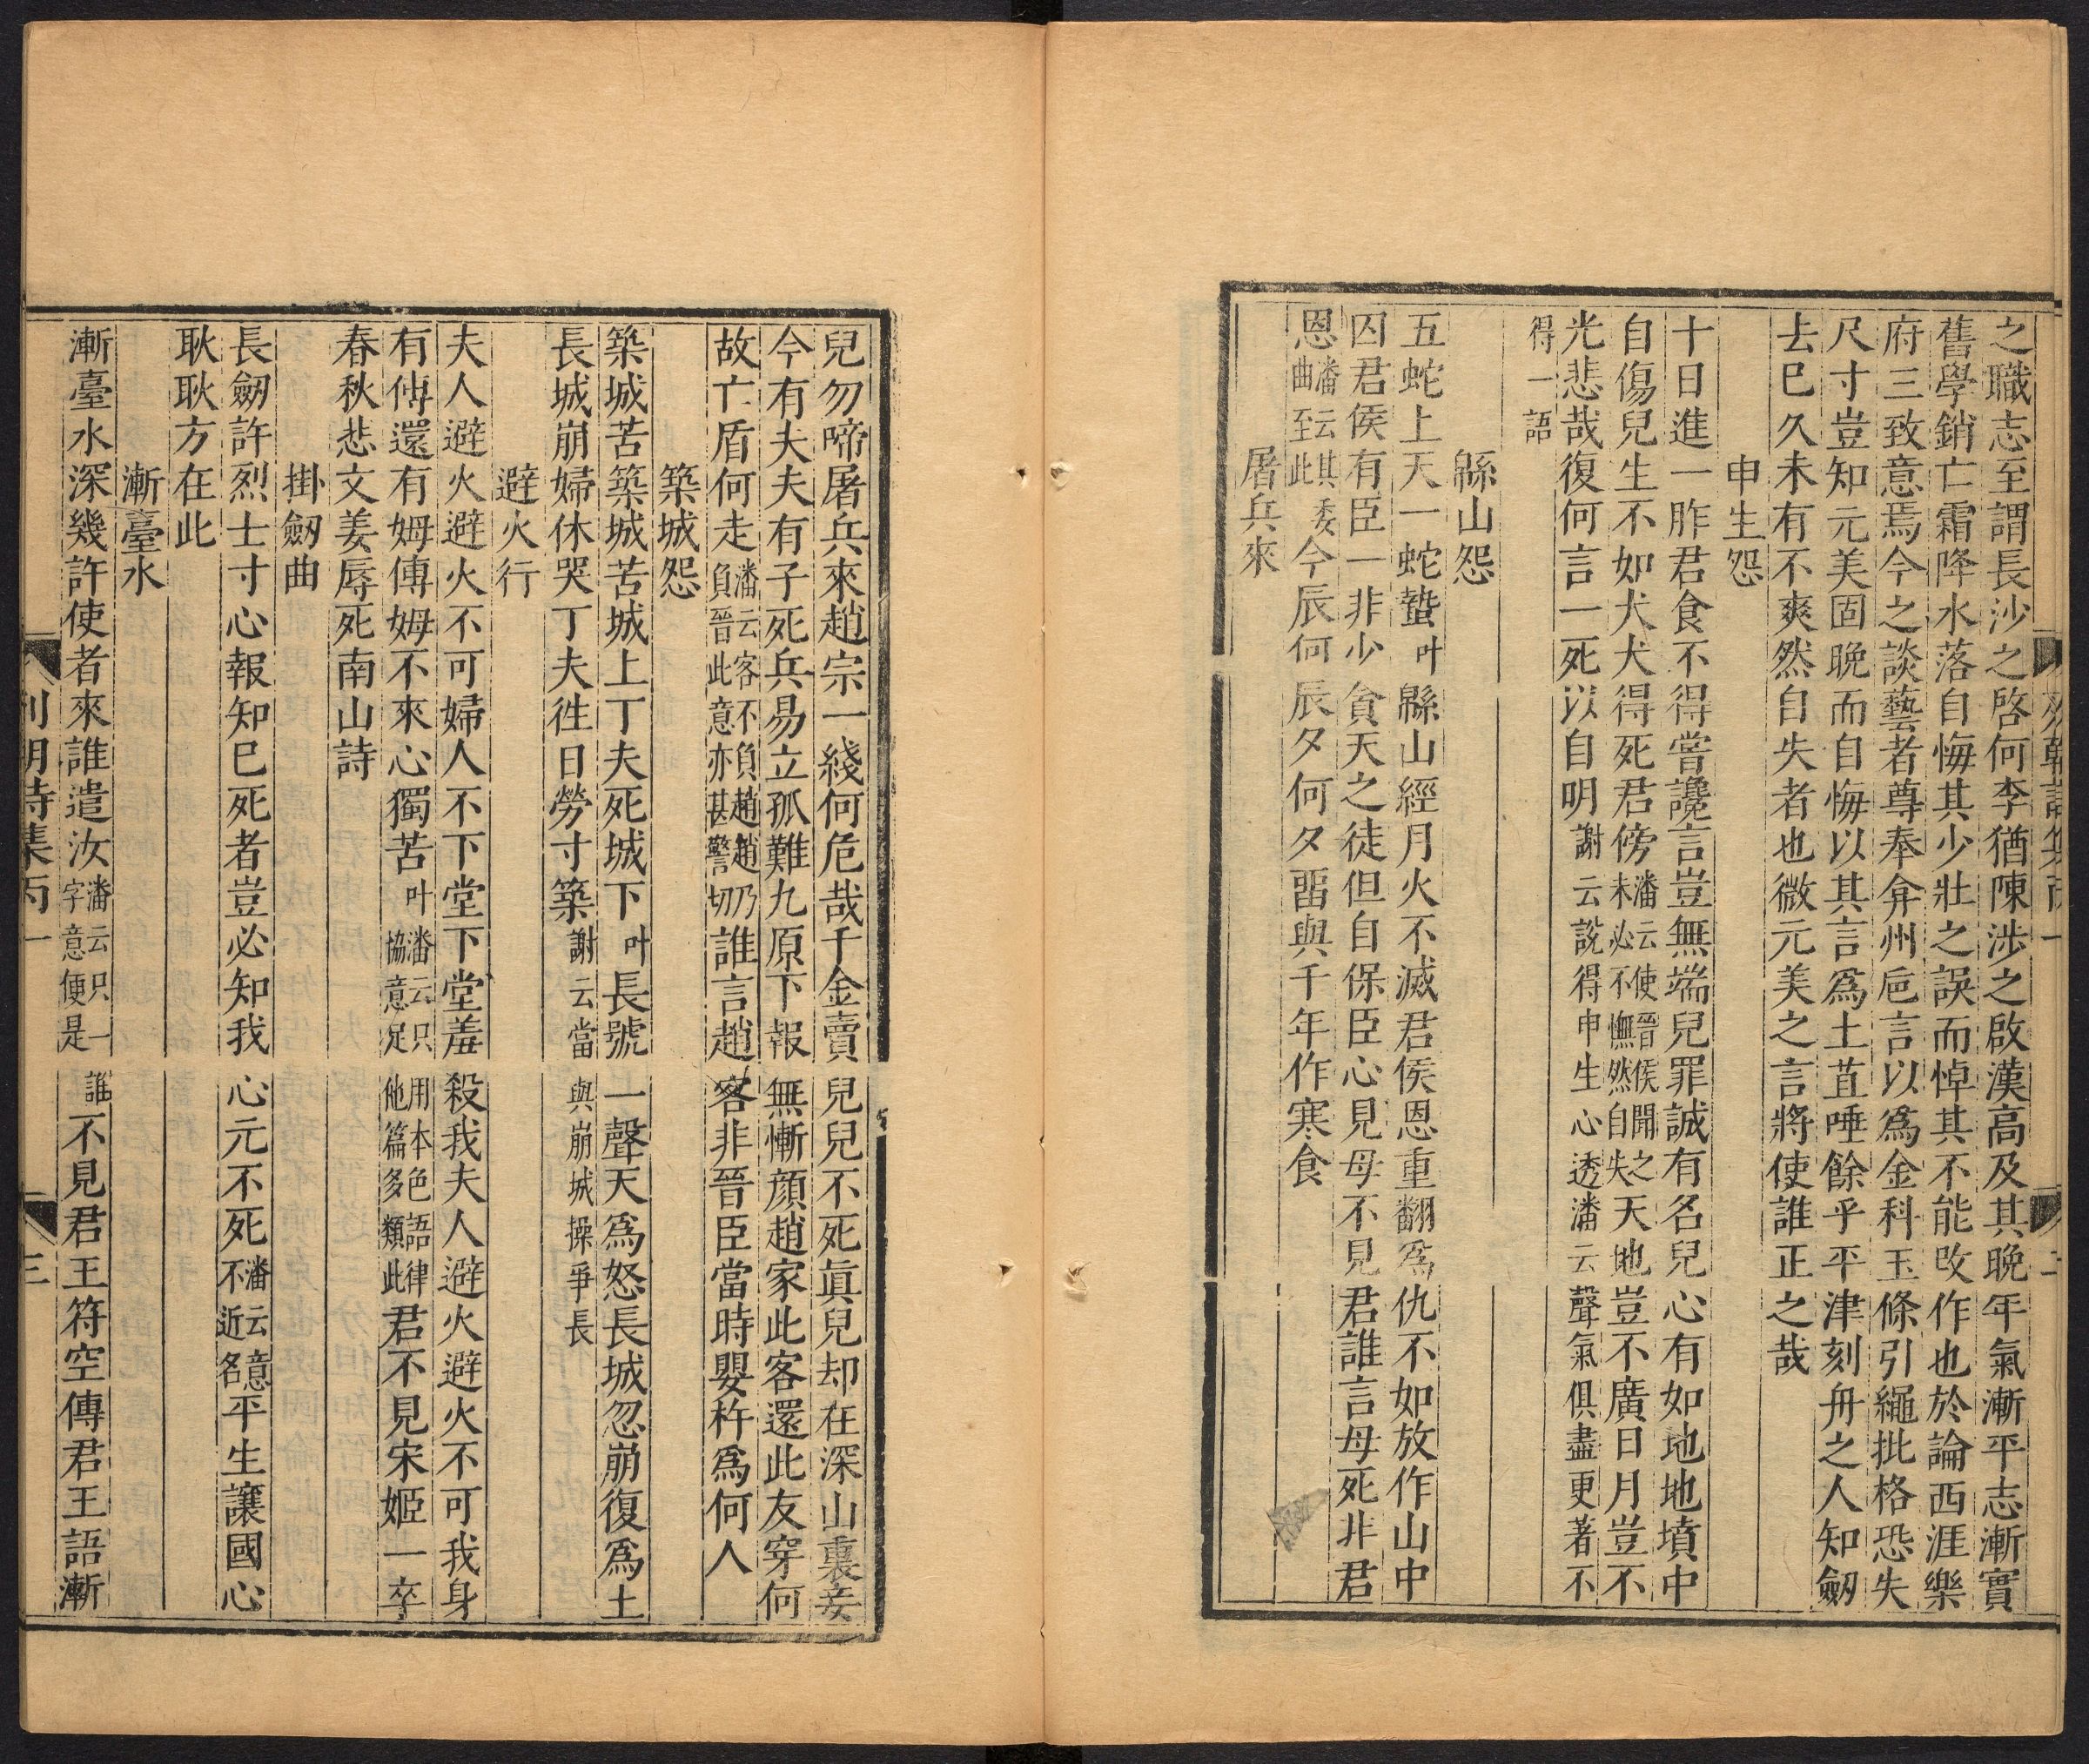 之職志至謂長沙之啓何李猶陳涉之啟漢高及其晚年氣漸平志漸實
舊學銷亡霜降水落自悔其少壯之誤而悼其不能改作也於論西涯樂
府三致意焉今之談藝者尊奉弇州巵言以爲金科玉條引繩批格恐失
尺寸豈知元美固晚而自悔以其言爲土苴唾餘乎平津刻舟之人知劒
去已久未有不爽然自失者也微元美之言將使誰正之哉
申生怨
十日進一胙君食不得嘗讒言豈無端兒罪誠有名兒心有如地地墳中
自傷兒生不如犬犬得死君傍潘云使晉侯聞之未必不憮然自失天地豈不廣日月豈不
光悲哉復何言一死以自明謝云說得申生心透潘云聲氣俱盡更著不
得一語
緜山怨
五蛇上天一蛇蟄叶緜山經月火不滅君侯恩重翻爲仇不如放作山中
囚君侯有臣一非少貪天之徒但自保臣心見母不見君誰言母死非君
恩潘云其委曲至此今辰何辰夕何夕畱與千年作寒食
屠兵來
兒勿啼屠兵來趙宗一綫何危哉千金賣兒兒不死眞兒却在深山裏妾
今有夫夫有子死兵易立孤難九原下報無慚顔趙家此客還此友穿何
故亡盾何走潘云客不負趙趙乃負晉此意亦甚警切誰言趙客非晉臣當時嬰杵爲何人
築城怨
築城苦築城苦城上丁夫死城下叶長號一聲天爲怒長城忽崩復爲土
長城崩婦休哭丁夫徃日勞寸築謝云當與崩城操爭長
避火行
夫人避火避火不可婦人不下堂下堂羞殺我夫人避火避火不可我身
有傅還有姆傅姆不來心獨苦叶潘云只用本色語律協意足他篇多類此君不見宋姬一卒
春秋悲文姜辱死南山詩
掛劒曲
長劒許烈士寸心報知已死者豈必知我心元不死潘云意不近名平生讓國心
耿耿方在此
漸臺水
漸臺水深幾許使者來誰遣汝潘云只一字意便是誰不見君王符空傳君王語漸
列朝詩集丙一
三